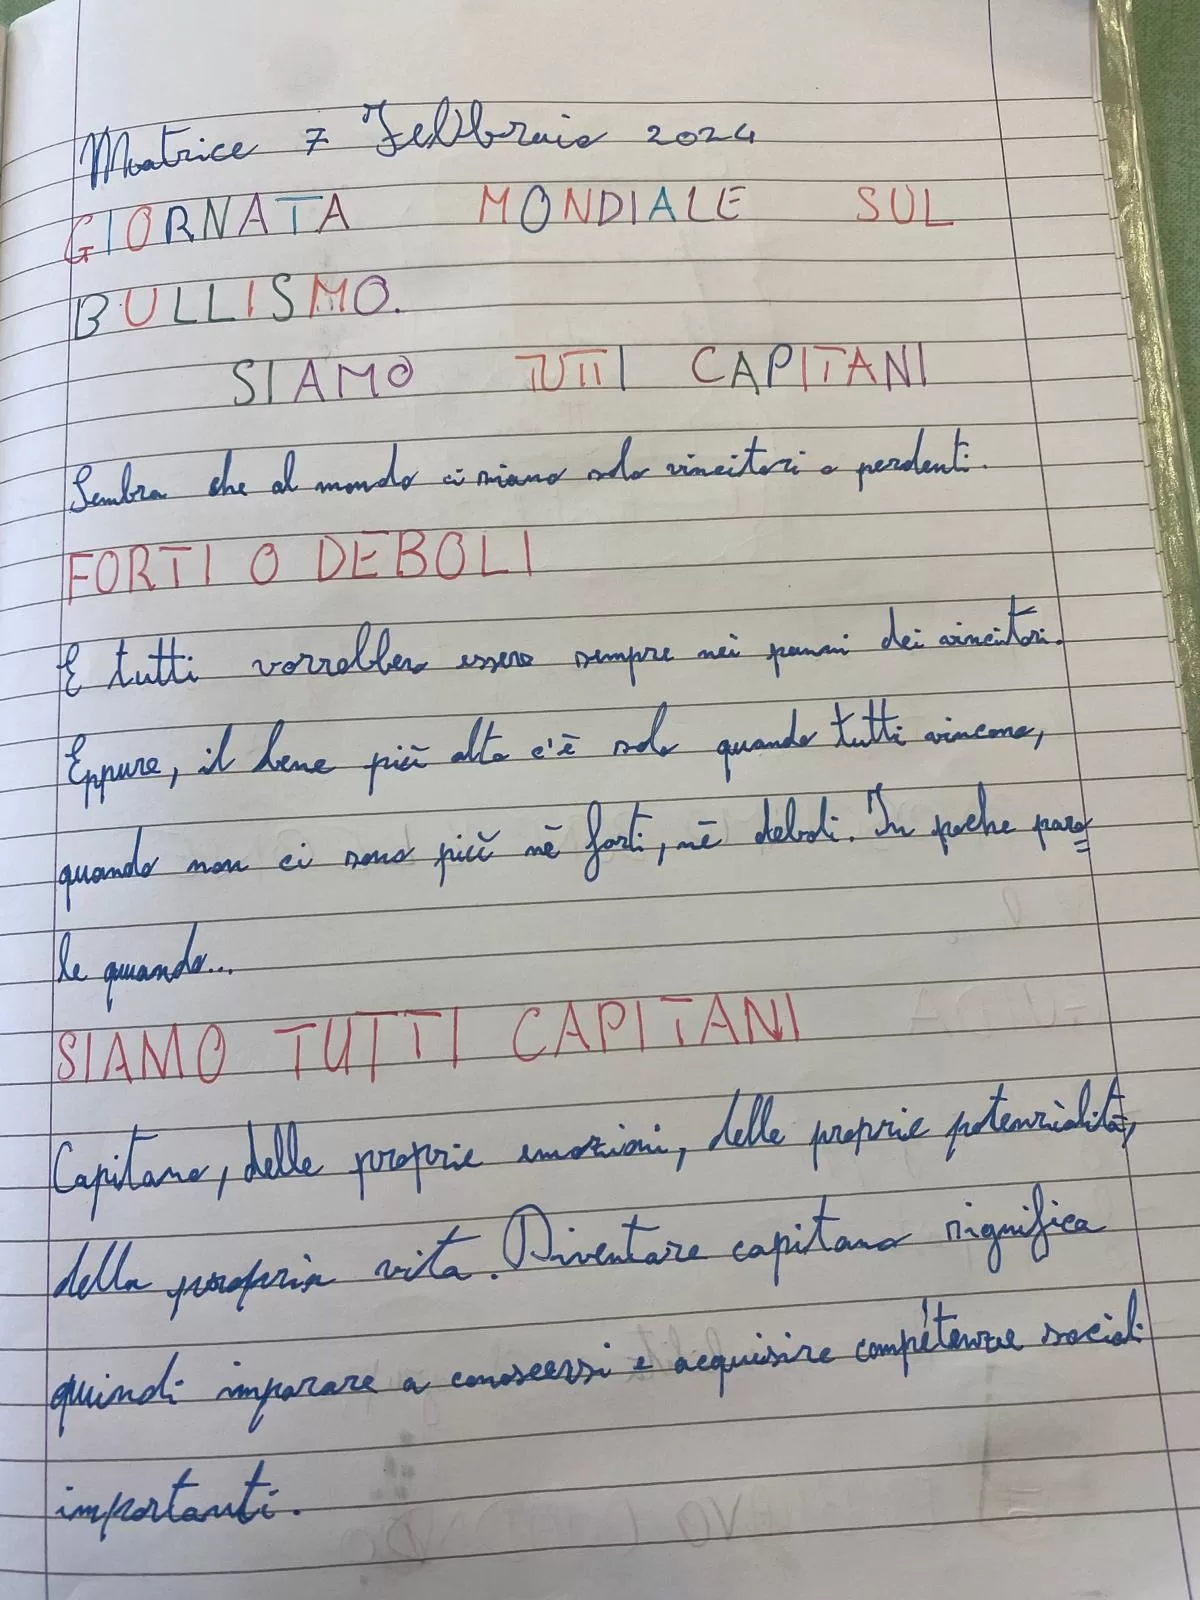 Matrice 7 Febbraio 2024
GIORNATA MONDIALE SUL
BULLISMO.
SIAMO TUTTI CAPITANI
Sembra che al mondo ci siano solo vincitori o perdenti.
FORTI O DEBOLI
E tutti vorrebbero essere sempre nei panni dei vincitori.
Eppure, il bene più alto c'è solo quando tutti vincono,
quando non ci sono più nè forti, nè deboli. In poche paro=
le quando...
SIAMO TUTTI CAPITANI
Capitano, delle proprie emozioni, delle proprie potenzialità,
della propria vita. Diventare capitano significa
quindi imparare a conoscersi e acquisire competenze sociali
importanti.